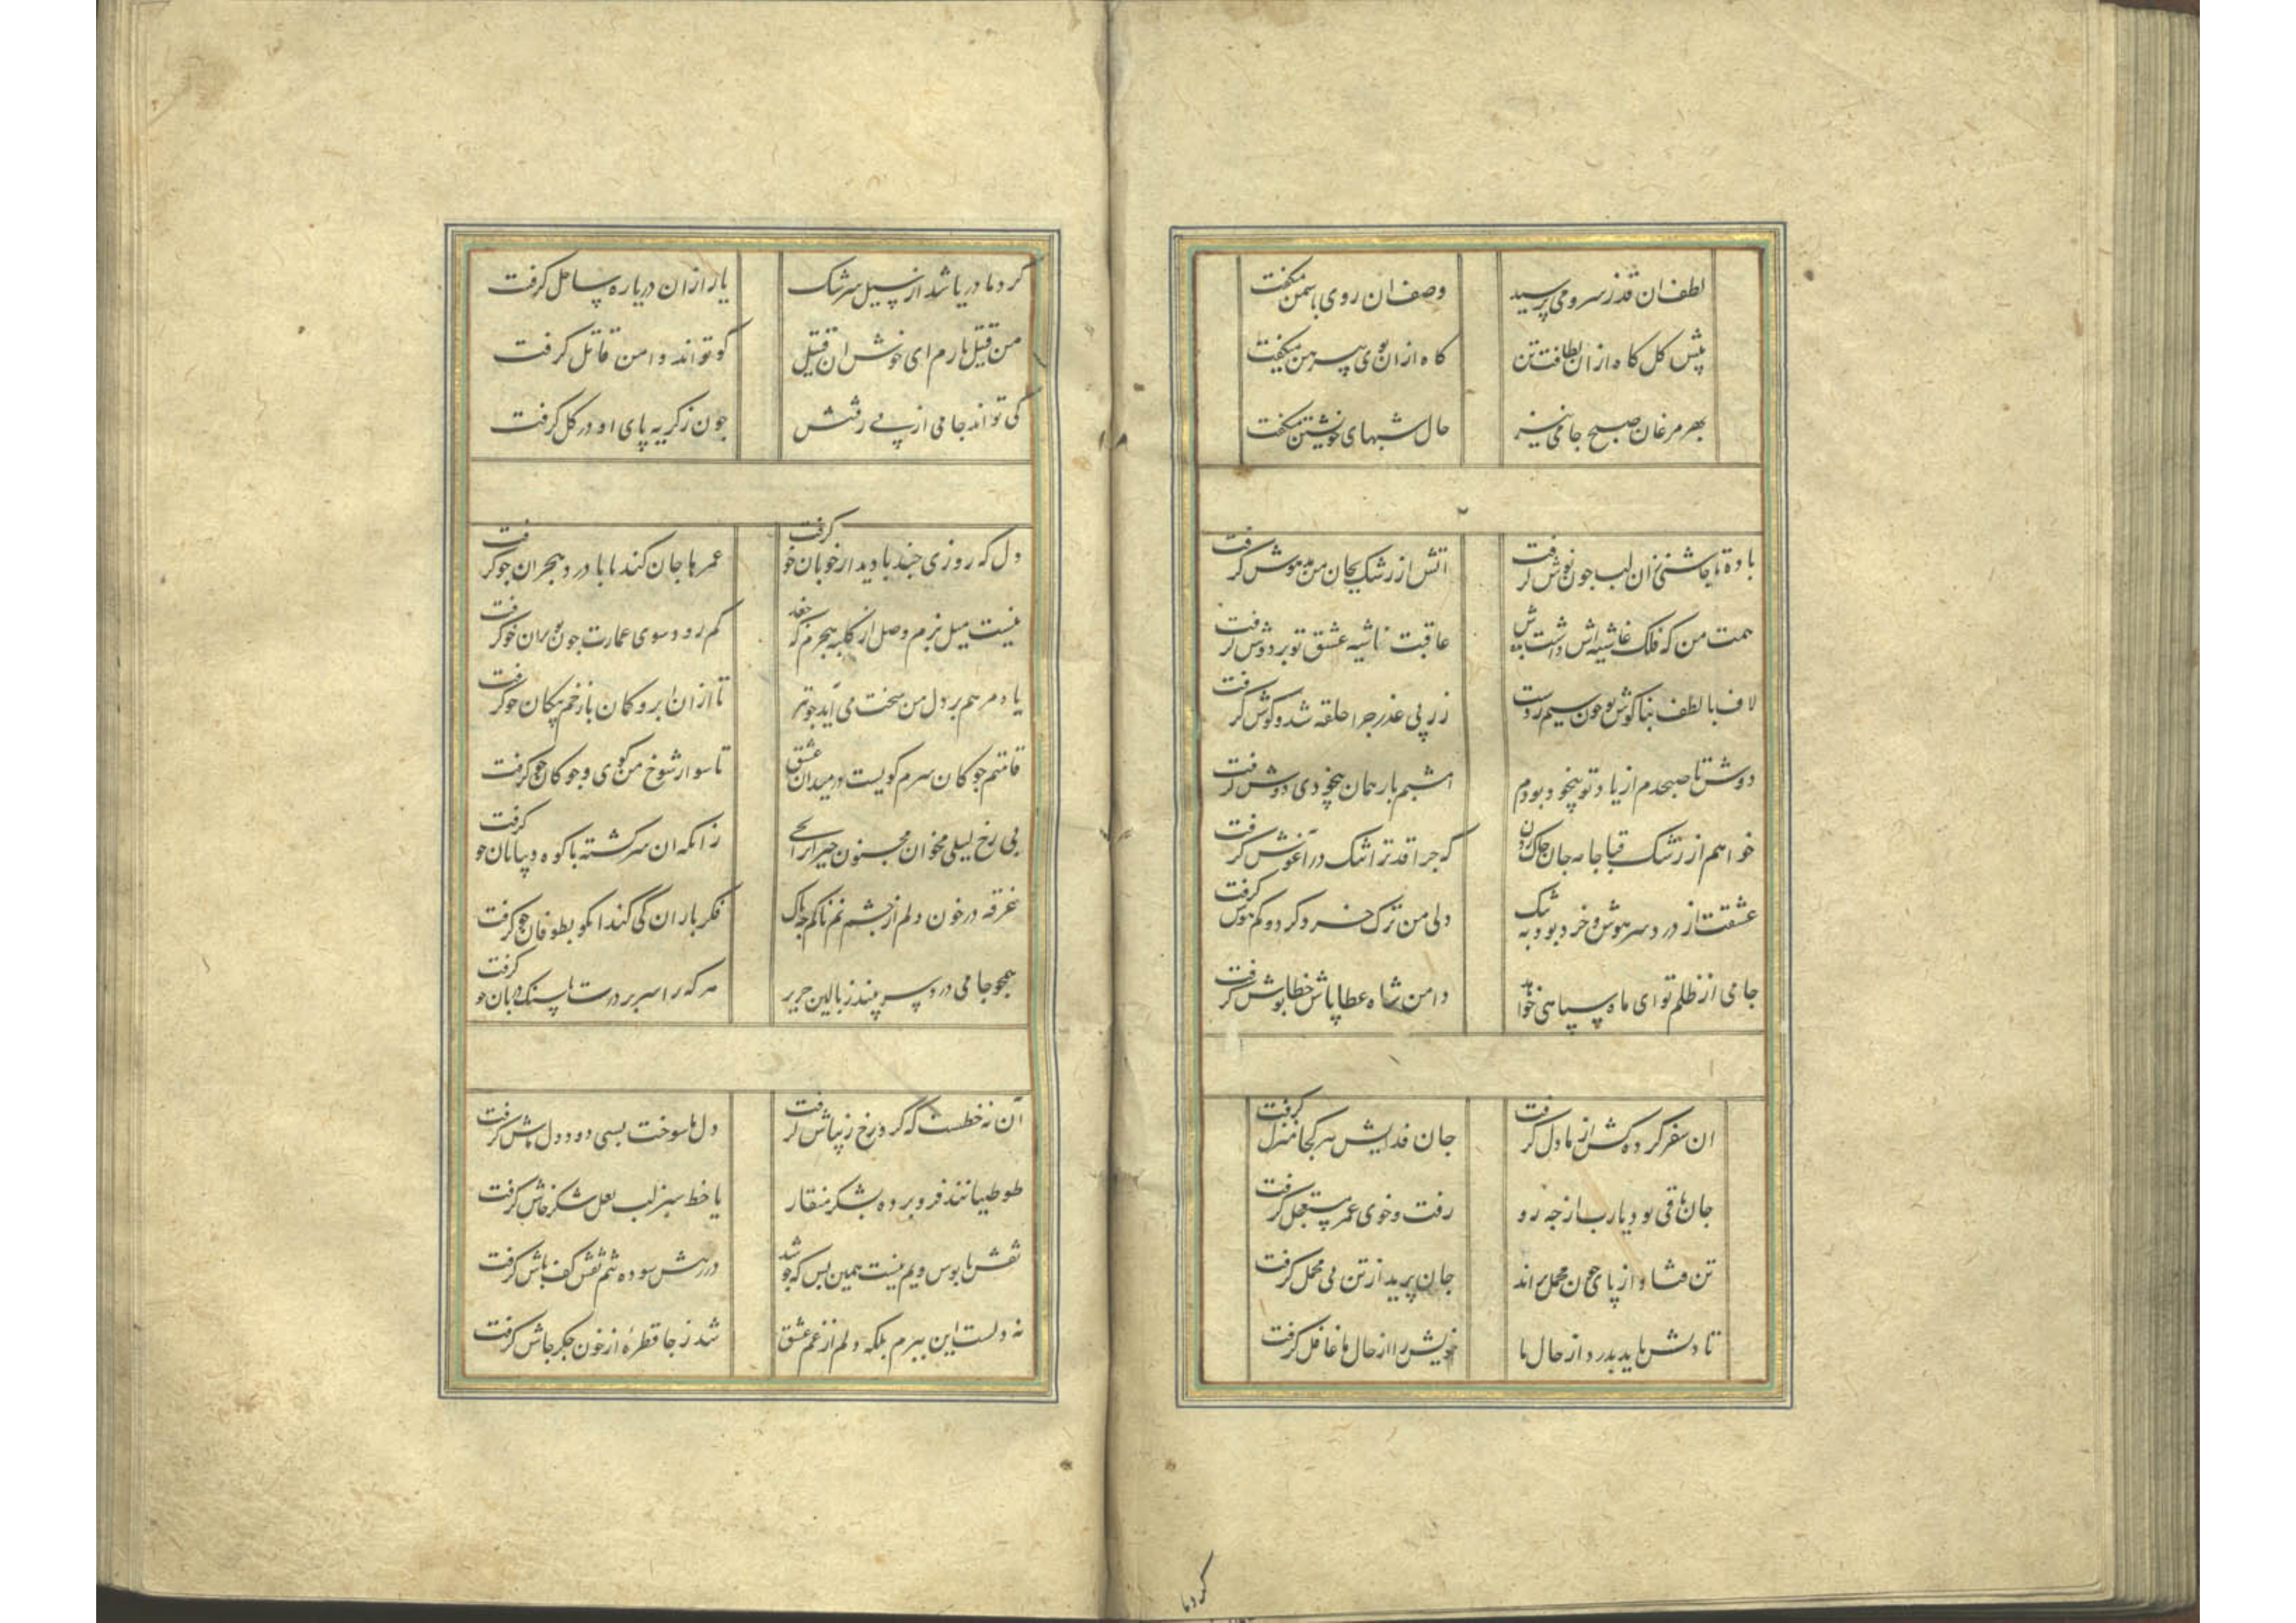 لطف ان قد ز سرو می پرسید وصف ان روی با سمن میکفت
پیش کل کاه از ان لطافت تن کاه از ان بوی پیرهن میکفت
بهر مرغان صبح جامی نیز حال شبهای خویشتن میکفت
باده تا چاشنیی زان لب چون نوش کرفت اتش از رشک بجان من مدهوش کرفت
همت من که فلک غاشیه اش داشت بدوش عاقبت غاشیه عشق تو بر دوش کرفت
لاف با لطف بناکوش تو چون سیم زدست زر پی عذر چرا حلقه شد و کوش کرفت
دوش تا صبحدم از یاد تو بیخود بودم امشبم باز همان بیخودی دوش کرفت
خواهم از رشک قبا جامه جان چاک زدن که چرا قد ترا تنک در آغوش کرفت
عشقت از درد سر هوش و خرد بود به تنک دلی من ترک خرد کرد و کم هوش کرفت
جامی از ظلم تو ای ماه سپاهی خواهد دامن شاه عطا پاش خطا پوش کرفت
ان سفر کرده کش از ما دل کرفت جان فدایش هر کجا منزل کرفت
جان باقی بود یارب از چه رو رفت و خوی عمر مستعجل کرفت
تن فتاد از پای چون محمل براند جان برید از تن پی محمل کرفت
تا دلش ناید بدرد از حال ما خویش را از حال ما غافل کرفت
کرد ما
کرد ما دریا شد از سیل سرشک یار ازان دریا ره ساحل کرفت
من قتیل یارم ای خوش ان قتیل کو تواند دامن قاتل کرفت
کی تواند جامی از پی رفتنش چون ز کریه پای او در کل کرفت
دل که روزی چند با دیدار خوبان خو کرفت عمرها جان کند تا با درد هجران خو کرفت
نیست میل بزم وصل از کلبه هجرم که جغد کم رود سوی عمارت چون بویران خو کرفت
یاد مرهم بر دل من سخت می آید چو تیر تا ازان ابرو کمان با زخم پیکان خو کرفت
قامتم چوکان سرم کویست در میدان عشق تا سوار شوخ من با کوی و چوکان خو کرفت
بی رخ لیلی مخوان مجنون حیران را بحی زانکه ان سرکشته با کوه و بیابان خو کرفت
غرقه در خون دلم از چشم نمناکم چه باک فکر باران کی کند انکو بطوفان خو کرفت
همچو جامی درد سر بیند ز بالین حریر هر که را سر بر درت با سنک دربان خو کرفت
آن نه خطست که کرد رخ زیباش کرفت دل ما سوخت بسی دود دل ماش کرفت
طوطیانند فرو برده بشکر منقار یا خط سبز لب لعل شکرخاش کرفت
نقش پابوس ویم نیست همین بس که چو شد در رهش سوده تنم نقش کف پاش کرفت
نه دلست این ببرم بلکه دلم از غم عشق شد ز جا قطرهٔ از خون جکر جاش کرفت